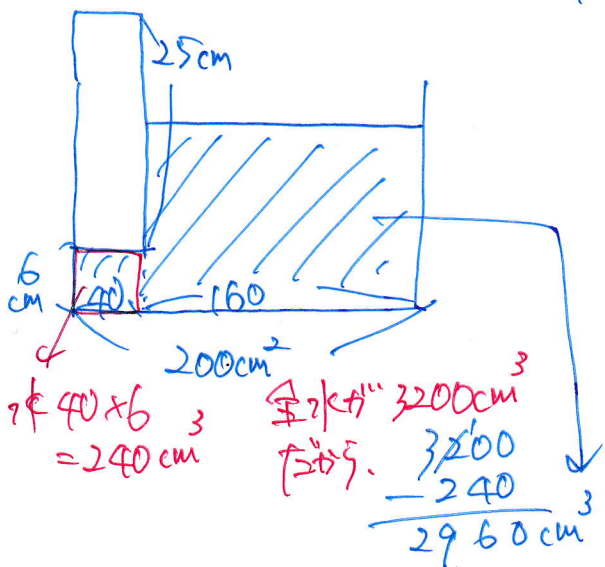 25cm
6
cm
40
160
200cm²
水 40×6
=240cm³
全水が 3200cm³
だから、
3200
-240
2960cm³